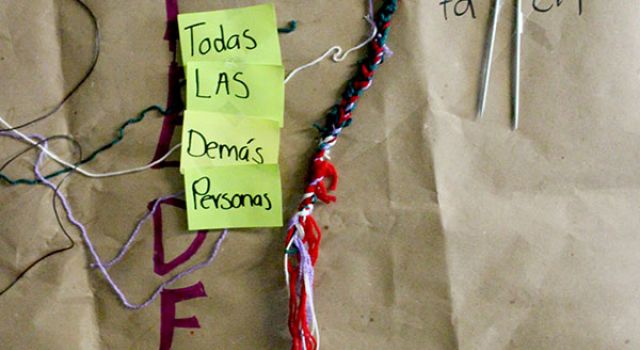 Todas
LAS
Demás
Personas
D
F